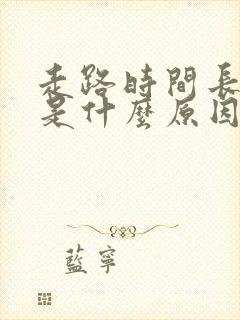 走路時間長
是什麼原因
藍寧